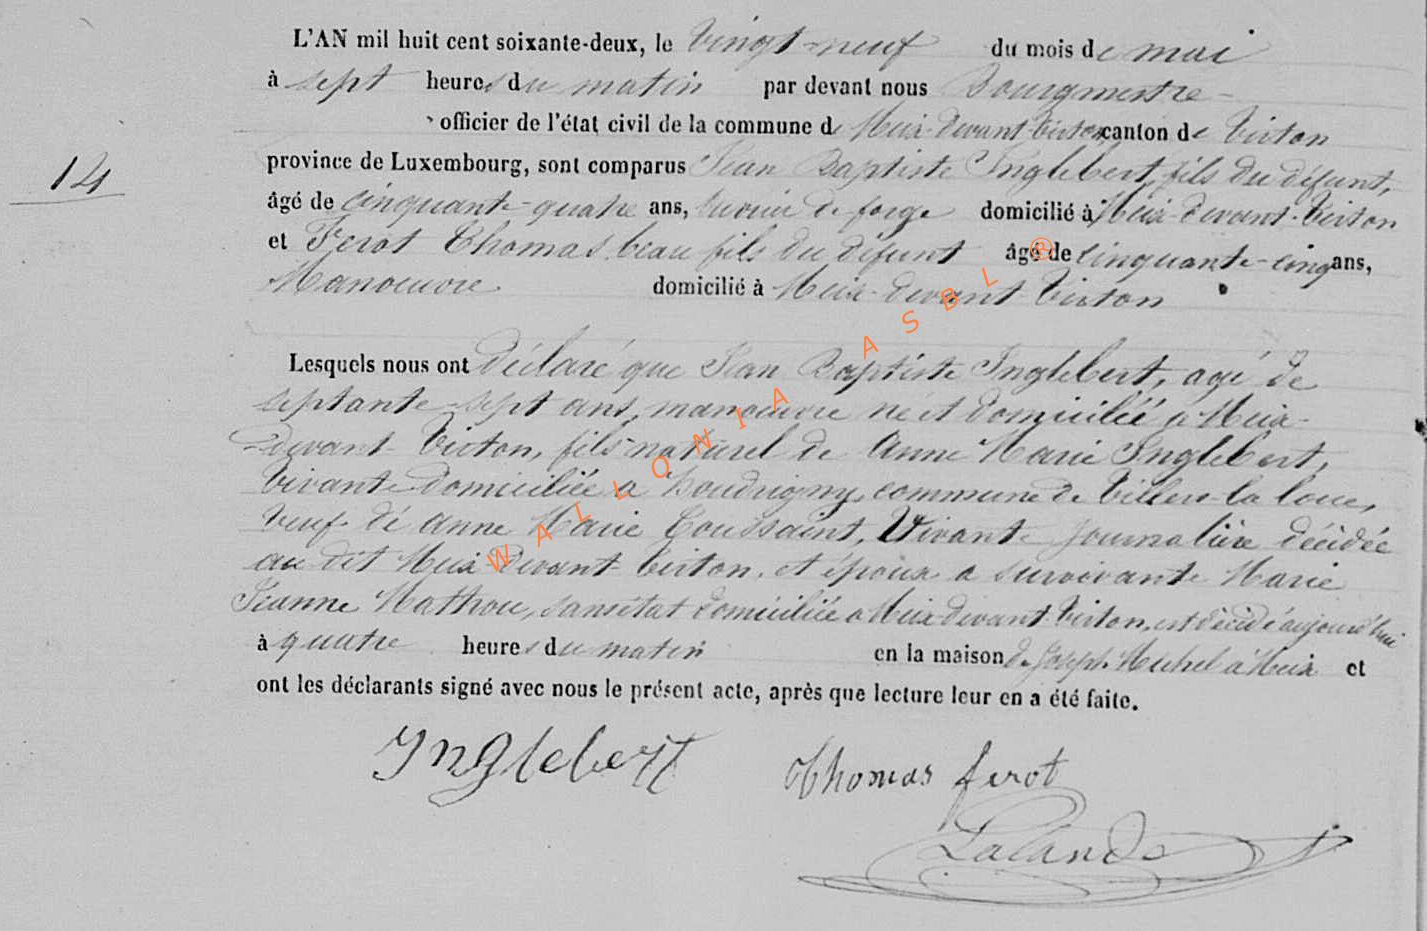 L'AN mil huit cent soixante-deux, le vingt-neuf du mois de mai
à sept heures du matin par devant nous Bourgmestre
officier de l'état civil de la commune de Meix-devant-Virton canton de Virton
14
province de Luxembourg, sont comparus Jean Baptiste Inglebert, fils du défunt,
âgé de cinquante-quatre ans, ouvrier de forge domicilié à Meix-devant-Virton
et Ferot Thomas, beau fils du défunt âgé de cinquante-cinq ans,
Manoeuvre domicilié à Meix-devant-Virton
Lesquels nous ont déclaré que Jean Baptiste Inglebert, agé de
septante-sept ans, manoeuvre né et domicilié à Meix-
devant-Virton, fils naturel de Anne Marie Inglebert,
vivante domiciliée a Houdrigny, commune de Villers-la-loue,
veuf de Anne Marie Toussaint, Vivante journalière décédée
au dit Meix-devant-Virton, et époux a survivante Marie
Jeanne sans état domiciliée a Meix-devant-Virton, est décédé aujourd'hui
à quatre heures du matin en la maison de Joseph Michel à Meix et
ont les déclarants signé avec nous le présent acte, après que lecture leur en a été faite.
Inglebert Thomas ferot
Lalande
WALLONIA ASBL ®